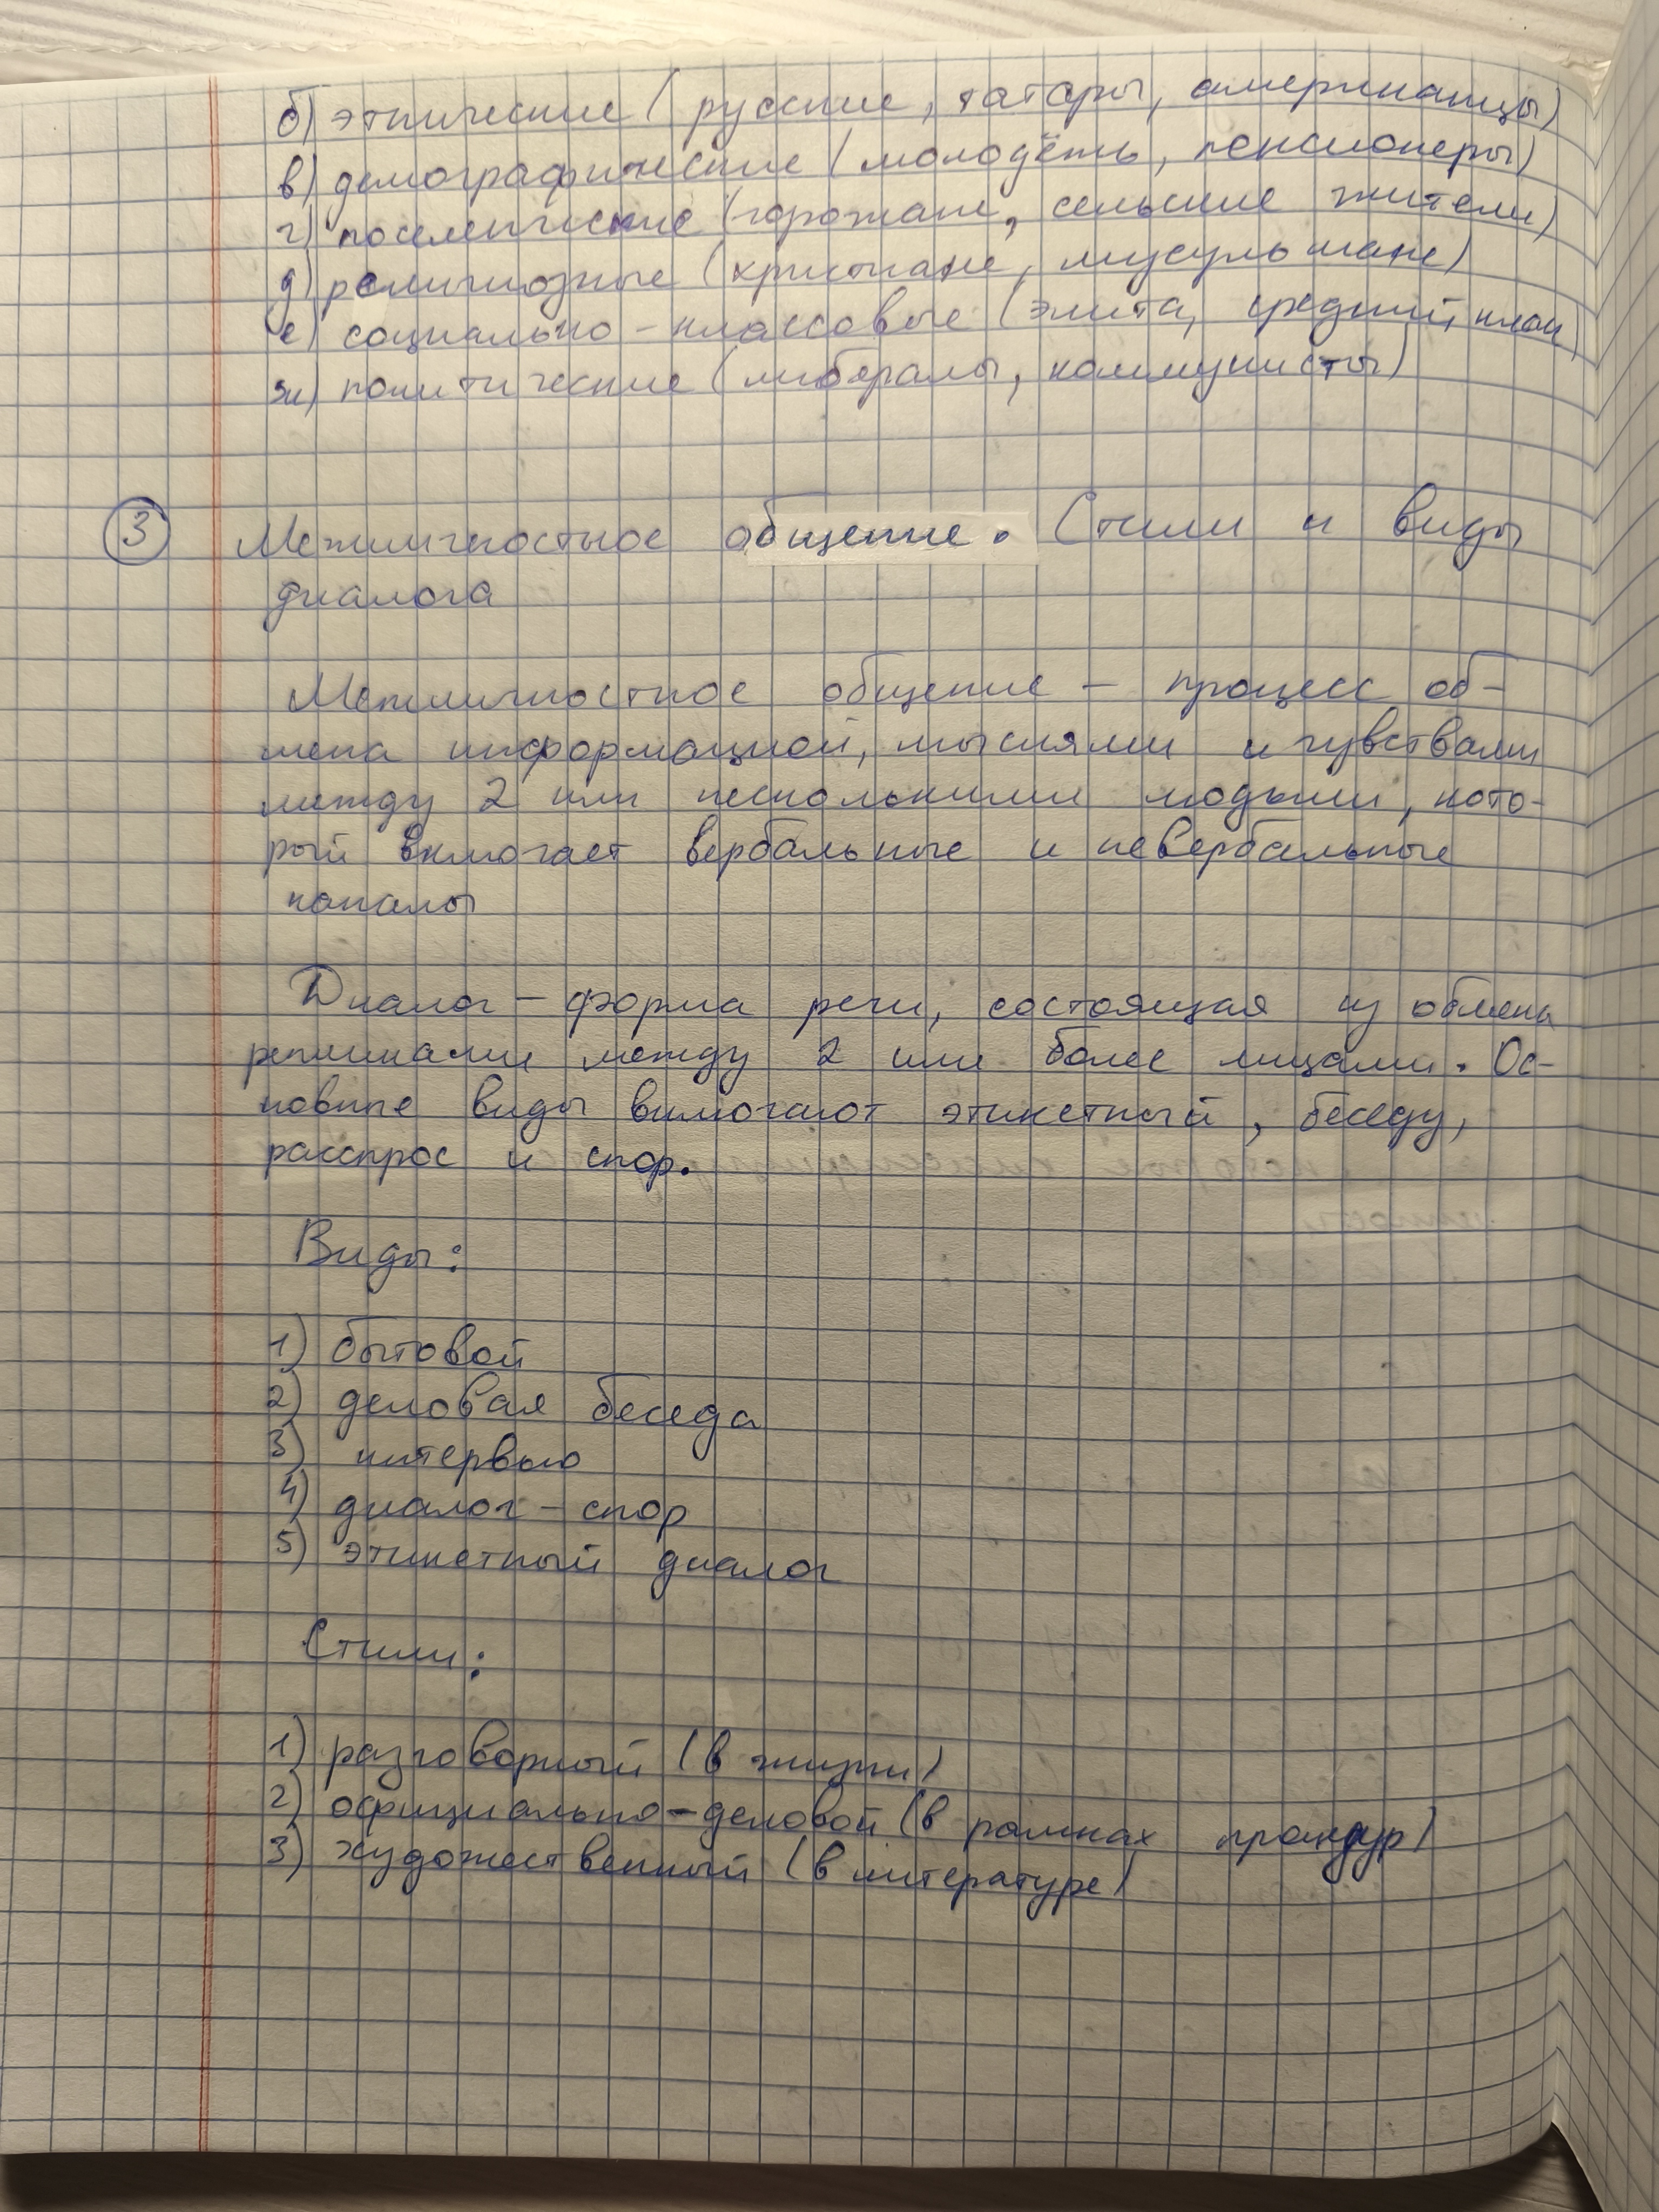 б) этнические (русские, татары, американцы)
в) демографические (молодёжь, пенсионеры)
г) поселенческие (горожане, сельские жители)
д) религиозные (христиане, мусульмане)
е) социально-классовые (элита, средний класс)
ж) политические (либералы, коммунисты)
3 Межличностное общение. Стили и виды
диалога
Межличностное общение – процесс об-
мена информацией, мыслями и чувствами
между 2 или несколькими людьми, кото-
рый включает вербальные и невербальные
каналы
Диалог – форма речи, состоящая из обмена
репликами между 2 или более лицами. Ос-
новные виды включают этикетный, беседу,
расспрос и спор.
Виды:
1) бытовой
2) деловая беседа
3) интервью
4) диалог-спор
5) этикетный диалог
Стили:
1) разговорный (в жизни)
2) официально-деловой (в рамках процедур)
3) художественный (в литературе)